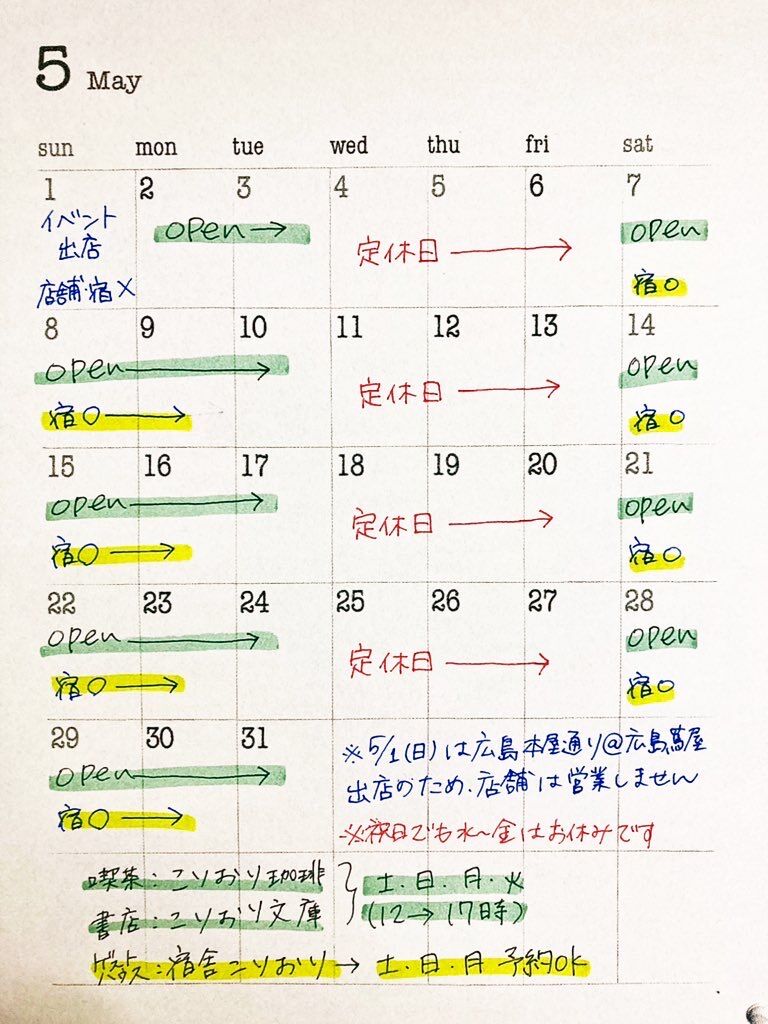 5 May
sun mon tue wed thu fri sat
1 2 3 4 5 6 7
イベント
出店
店舗・宿×
open→
定休日→
open
宿○
8 9 10 11 12 13 14
open→
定休日→
open
宿○→
宿○
15 16 17 18 19 20 21
open→
定休日→
open
宿○→
宿○
22 23 24 25 26 27 28
open→
定休日→
open
宿○→
宿○
29 30 31
open→
宿○→
※5/1(日)は広島本屋通り@広島蔦屋
出店のため、店舗は営業しません
※祝日でも水〜金はお休みです
喫茶:こりおり珈琲 土・日・月・火
書店:こりおり文庫 (12→17時)
ゲストハウス:宿舎こりおり→土・日・月 予約OK